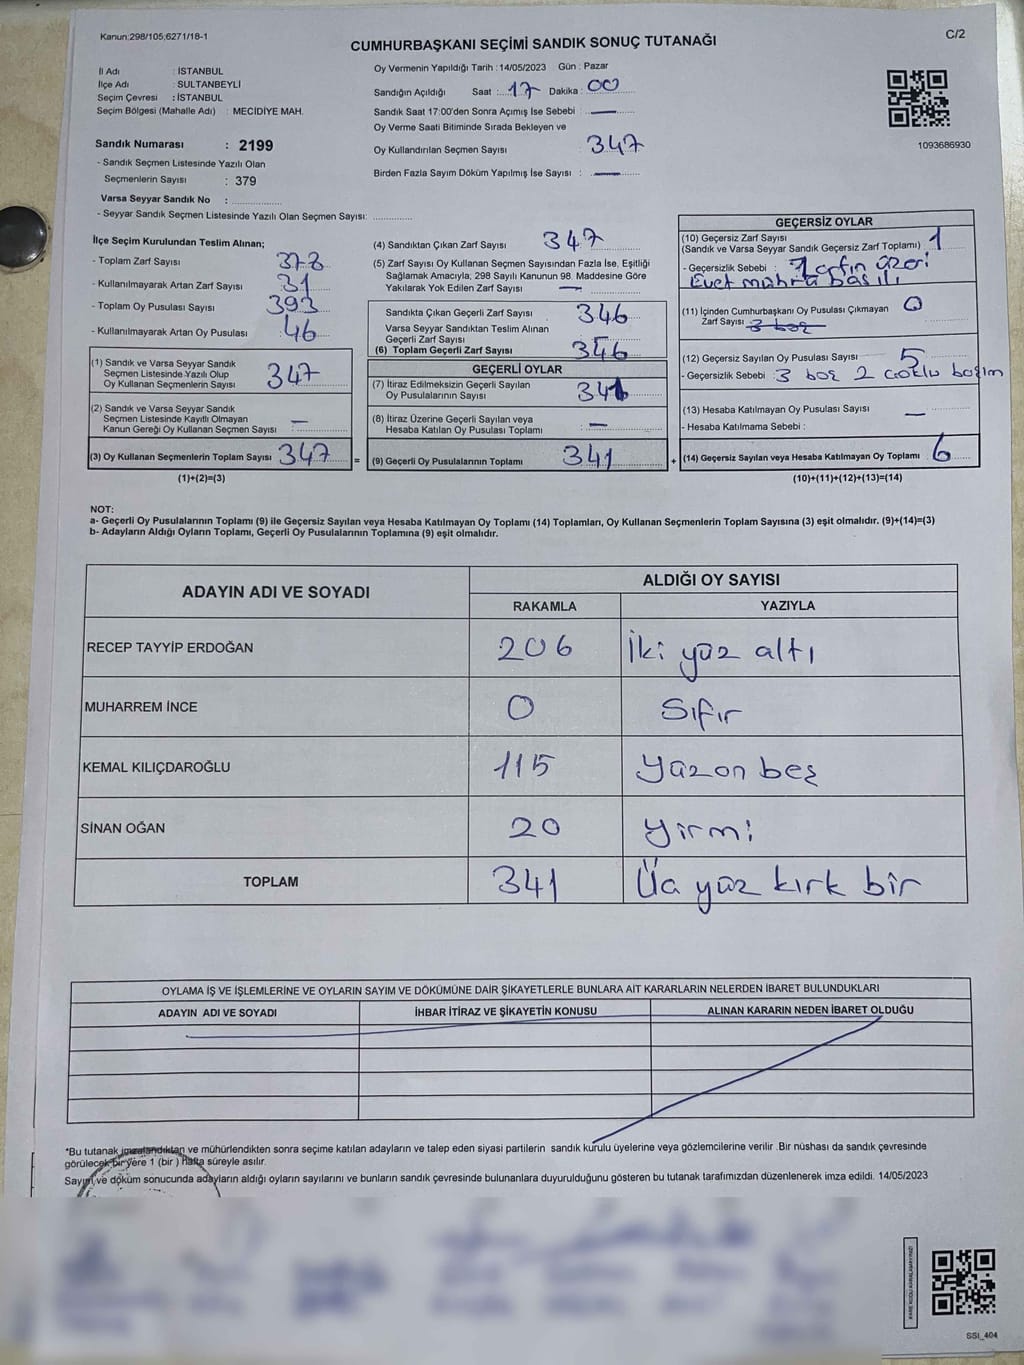 Kanun:298/105;6271/18-1
C/2
CUMHURBAŞKANI SEÇİMİ SANDIK SONUÇ TUTANAĞI
İl Adı : İSTANBUL
İlçe Adı : SULTANBEYLİ
Seçim Çevresi : İSTANBUL
Seçim Bölgesi (Mahalle Adı) : MECİDİYE MAH.
Sandık Numarası : 2199
- Sandık Seçmen Listesinde Yazılı Olan
Seçmenlerin Sayısı : 379
Varsa Seyyar Sandık No :
- Seyyar Sandık Seçmen Listesinde Yazılı Olan Seçmen Sayısı:
Oy Vermenin Yapıldığı Tarih : 14/05/2023 Gün : Pazar
Sandığın Açıldığı Saat : 17 Dakika : 00
Sandık Saat 17:00'den Sonra Açımış İse Sebebi : —
Oy Verme Saati Bitiminde Sırada Bekleyen ve
Oy Kullandırılan Seçmen Sayısı : 347
Birden Fazla Sayım Döküm Yapılmış İse Sayısı : —
1093686930
İlçe Seçim Kurulundan Teslim Alınan;
- Toplam Zarf Sayısı 378
- Kullanılmayarak Artan Zarf Sayısı 31
- Toplam Oy Pusulası Sayısı 393
- Kullanılmayarak Artan Oy Pusulası 46
(1) Sandık ve Varsa Seyyar Sandık
Seçmen Listesinde Yazılı Olup
Oy Kullanan Seçmenlerin Sayısı 347
(2) Sandık ve Varsa Seyyar Sandık
Seçmen Listesinde Kayıtlı Olmayan
Kanun Gereği Oy Kullanan Seçmen Sayısı —
(3) Oy Kullanan Seçmenlerin Toplam Sayısı 347 =
(1)+(2)=(3)
(4) Sandıktan Çıkan Zarf Sayısı 347
(5) Zarf Sayısı Oy Kullanan Seçmen Sayısından Fazla İse, Eşitliği
Sağlamak Amacıyla; 298 Sayılı Kanunun 98. Maddesine Göre
Yakılarak Yok Edilen Zarf Sayısı —
Sandıkta Çıkan Geçerli Zarf Sayısı 346
Varsa Seyyar Sandıktan Teslim Alınan
Geçerli Zarf Sayısı
(6) Toplam Geçerli Zarf Sayısı 346
GEÇERLİ OYLAR
(7) İtiraz Edilmeksizin Geçerli Sayılan
Oy Pusulalarının Sayısı 341
(8) İtiraz Üzerine Geçerli Sayılan veya
Hesaba Katılan Oy Pusulası Toplamı —
(9) Geçerli Oy Pusulalarının Toplamı 341 +
GEÇERSİZ OYLAR
(10) Geçersiz Zarf Sayısı
(Sandık ve Varsa Seyyar Sandık Geçersiz Zarf Toplamı) 1
- Geçersizlik Sebebi : Zarfın üzeri
Evet mührü basılı
(11) İçinden Cumhurbaşkanı Oy Pusulası Çıkmayan
Zarf Sayısı 3 boş 0
(12) Geçersiz Sayılan Oy Pusulası Sayısı 5
- Geçersizlik Sebebi : 3 boş 2 çoklu basım
(13) Hesaba Katılmayan Oy Pusulası Sayısı —
- Hesaba Katılmama Sebebi :
(14) Geçersiz Sayılan veya Hesaba Katılmayan Oy Toplamı 6
(10)+(11)+(12)+(13)=(14)
NOT:
a- Geçerli Oy Pusulalarının Toplamı (9) ile Geçersiz Sayılan veya Hesaba Katılmayan Oy Toplamı (14) Toplamları, Oy Kullanan Seçmenlerin Toplam Sayısına (3) eşit olmalıdır. (9)+(14)=(3)
b- Adayların Aldığı Oyların Toplamı, Geçerli Oy Pusulalarının Toplamına (9) eşit olmalıdır.
ADAYIN ADI VE SOYADI
ALDIĞI OY SAYISI
RAKAMLA YAZIYLA
RECEP TAYYİP ERDOĞAN 206 İki yüz altı
MUHARREM İNCE 0 Sıfır
KEMAL KILIÇDAROĞLU 115 Yüzon beş
SİNAN OĞAN 20 Yirmi
TOPLAM 341 Üç yüz kırk bir
OYLAMA İŞ VE İŞLEMLERİNE VE OYLARIN SAYIM VE DÖKÜMÜNE DAİR ŞİKAYETLERLE BUNLARA AİT KARARLARIN NELERDEN İBARET BULUNDUKLARI
ADAYIN ADI VE SOYADI İHBAR İTİRAZ VE ŞİKAYETİN KONUSU ALINAN KARARIN NEDEN İBARET OLDUĞU
*Bu tutanak imzalandıktan ve mühürlendikten sonra seçime katılan adayların ve talep eden siyasi partilerin sandık kurulu üyelerine veya gözlemcilerine verilir .Bir nüshası da sandık çevresinde
görülecek bir yere 1 (bir ) hafta süreyle asılır.
Sayım ve döküm sonucunda adayların aldığı oyların sayılarını ve bunların sandık çevresinde bulunanlara duyurulduğunu gösteren bu tutanak tarafımızdan düzenlenerek imza edildi. 14/05/2023
SSI_404